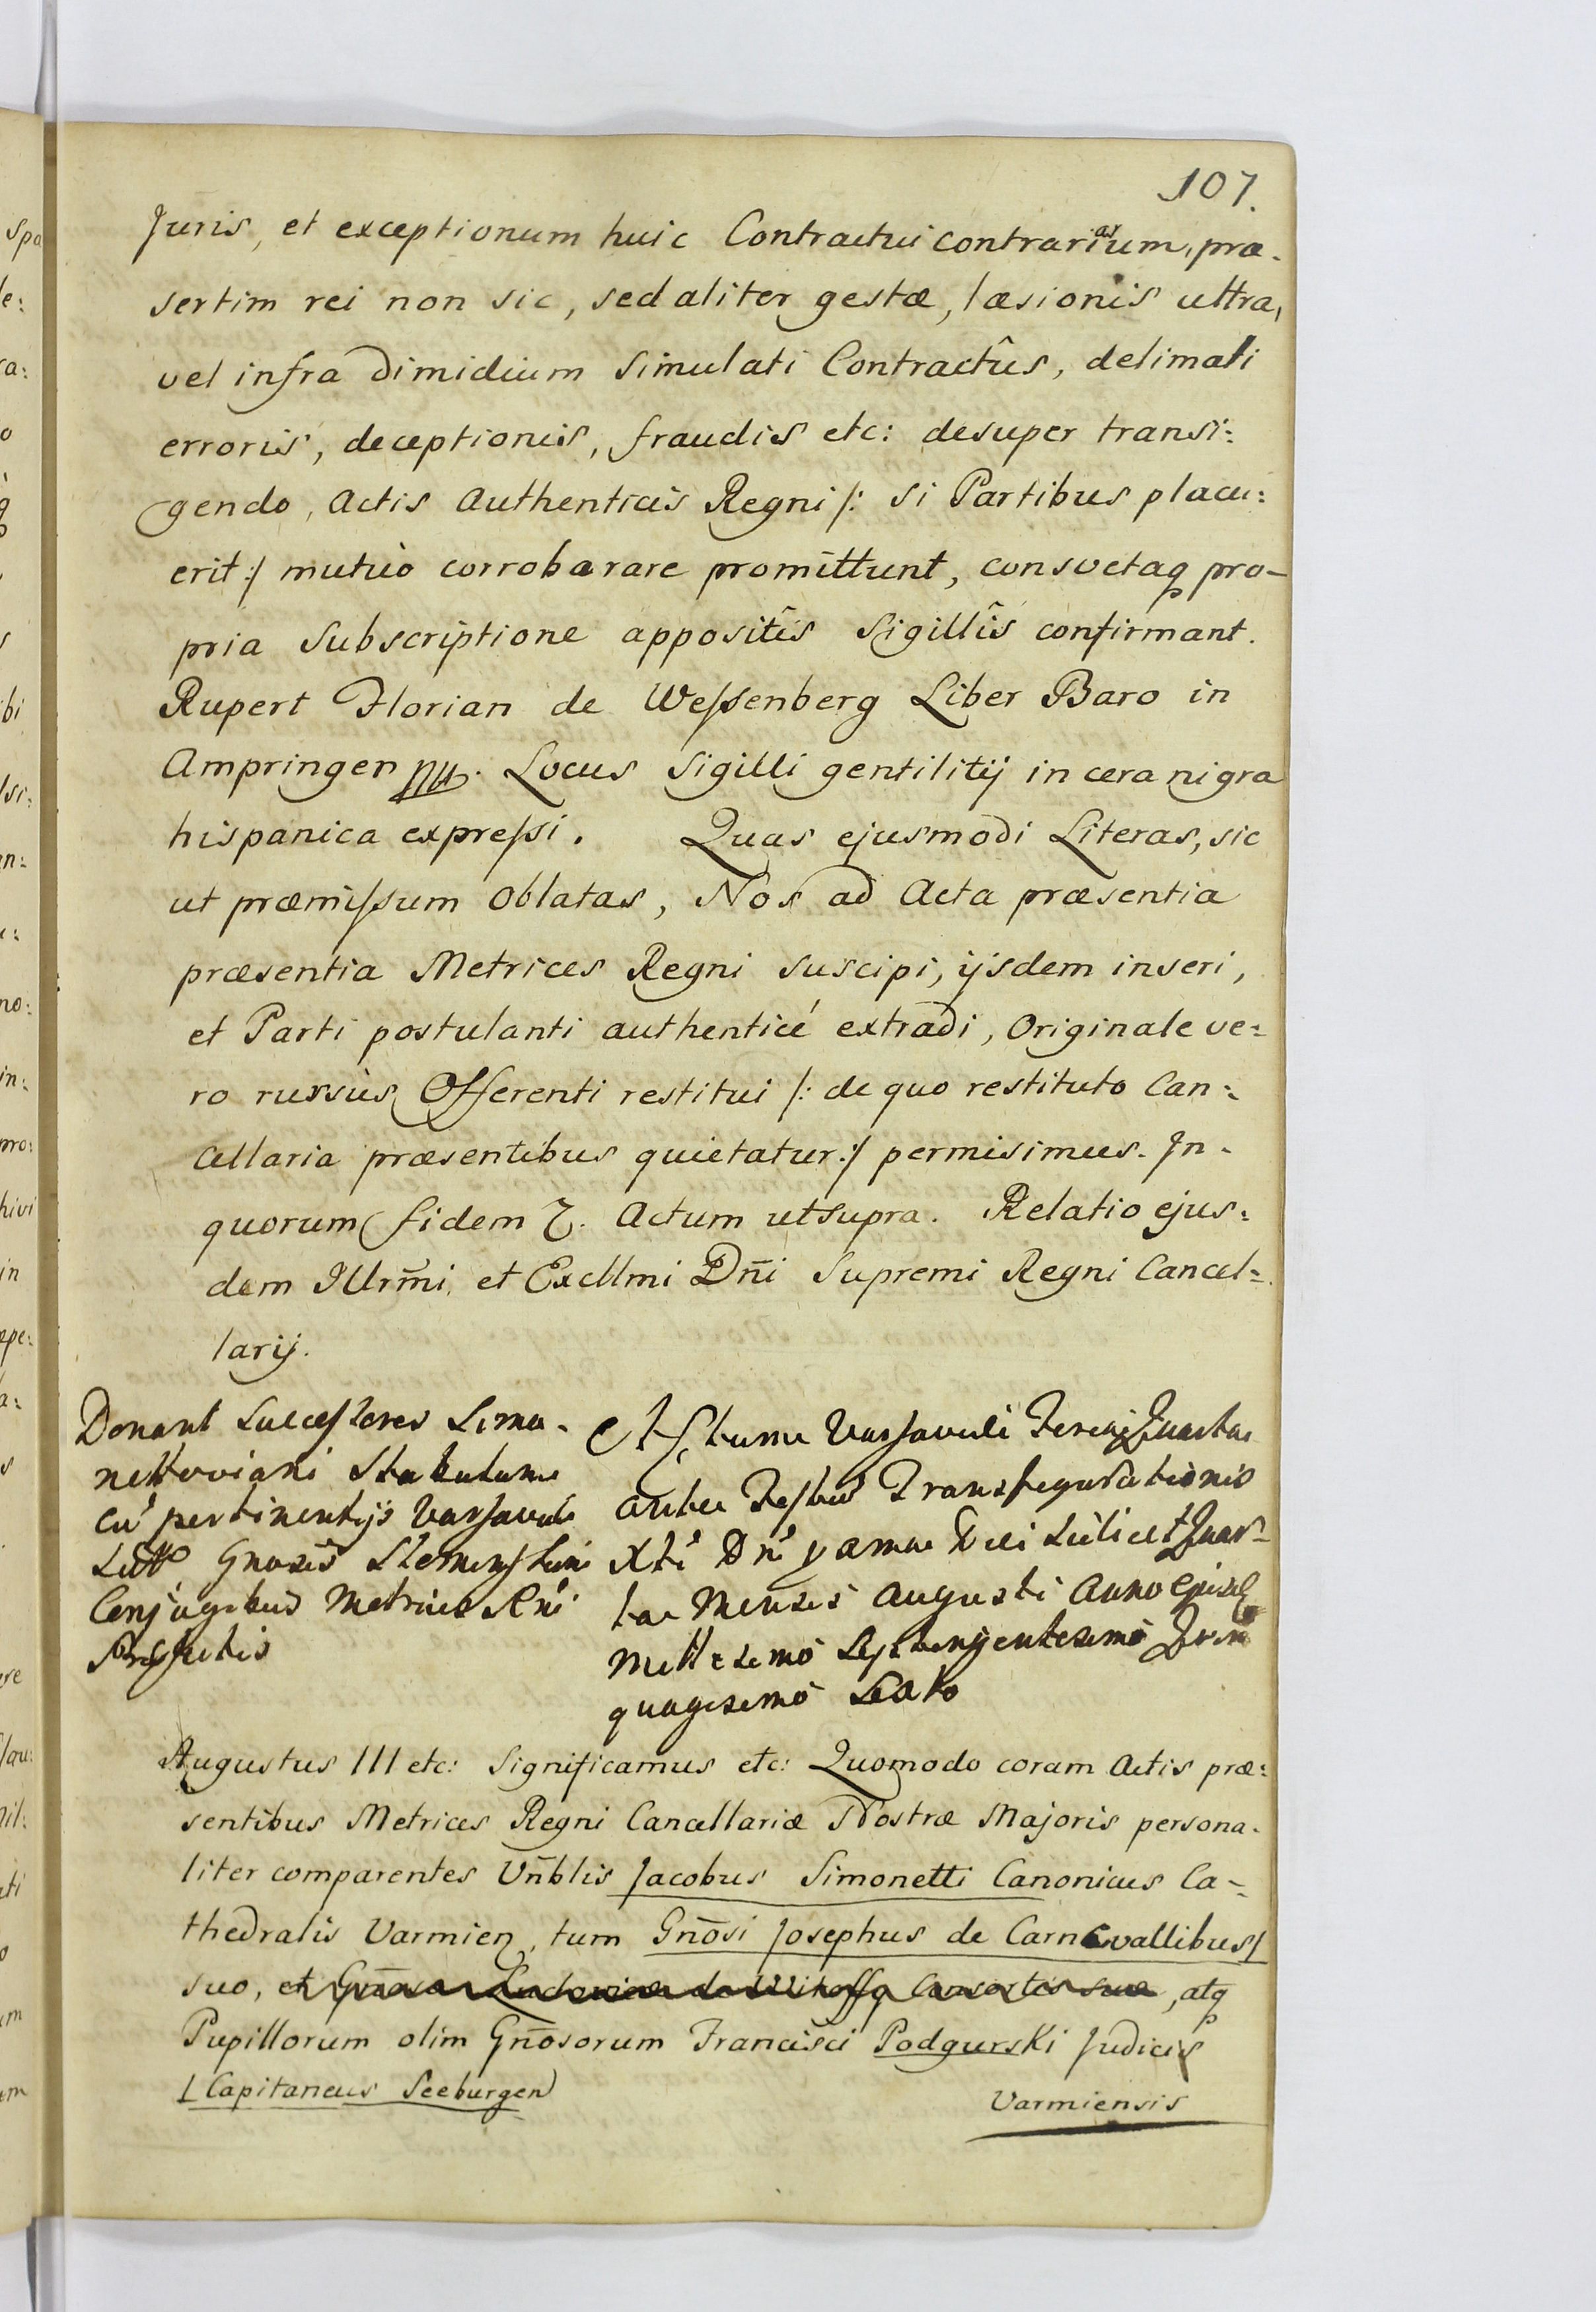 107.
Juris, et exceptionum huic Contractui contrariarum, præ-
sertim rei non sic, sed aliter gestæ, læsionis ultra,
vel infra dimidium simulati Contractûs, delimati
erroris, deceptionis, fraudis etc: desuper transi:
gendo, Actis Authenticis Regni /: si Partibus placu:
erit :/ mutuò corroborare promittunt, consvetaq pro-
pria Subscriptione appositîs Sigillîs confirmant.
Rupert Florian de Weſsenberg Liber Baro in
Ampringen Locus Sigilli gentilitij in cera nigra
hispanica expreſsi. Quas ejusmodi Literas, sic
ut præmiſsum Oblatas, Nos ad Acta præsentia
præsentia Metrices Regni suscipi, ijsdem inseri,
et Parti postulanti authenticé extradi, Originale ve:
ro russùs Offerenti restitui /: de quo restituto Can:
cellaria præsentibus quietatur :/ permisimus. In-
quorum fidem Actum utsupra. Relatio ejus:
dem Illrmi, et Excllmi Dñi Supremi Regni Cancel:
larij.
Donant Succeſsores Simo-
nettoviani Stabulum
cũ pertinentijs Varsaviæ
Gnosis
Conjugibus Metrices Rñi
Actum Varsaviæ Feria Quarta
ante Festũ Transfigurationis
Xti Dñi Die scilicet Quar-
ta Mensis Augusti Anno Ejusd
Millesimo Septingentesimo Quin
quagesimo Sexto
Augustus III etc: Significamus etc: Quomodo coram Actis præ:
sentibus Metrices Regni Cancellariæ Nostræ Majoris persona-
liter comparentes Vñblis Jacobus Simonetti Canonicus Ca-
thedralis Varmien, tum Gñosi Josephus de Carnevallibus /
suo, et Gñosa Ludovica de Consortis suæ, atq
Pupillorum olim Gñosorum Francisci Podgurski Judicis
/ Capitaneus Seeburgen
Varmiensis